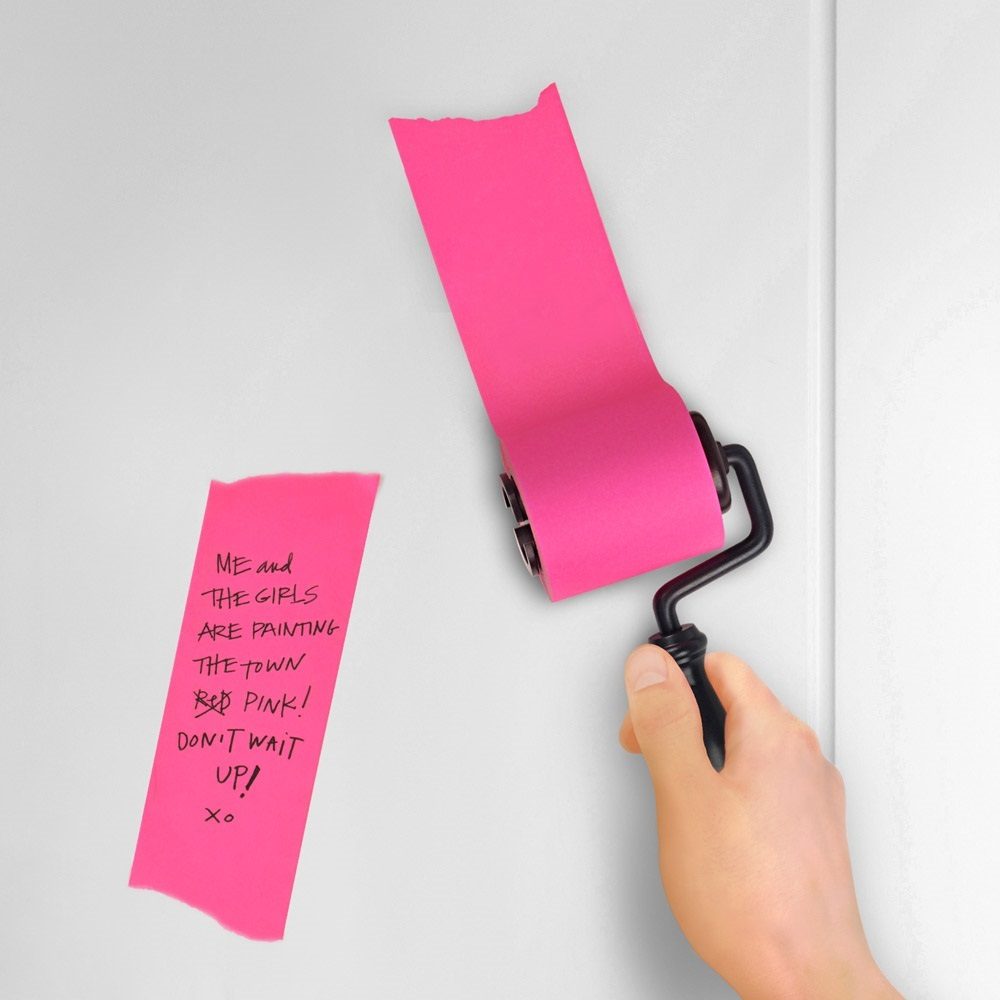 ME and
THE GIRLS
ARE PAINTING
THE TOWN
RED PINK!
DON'T WAIT
UP!
XO